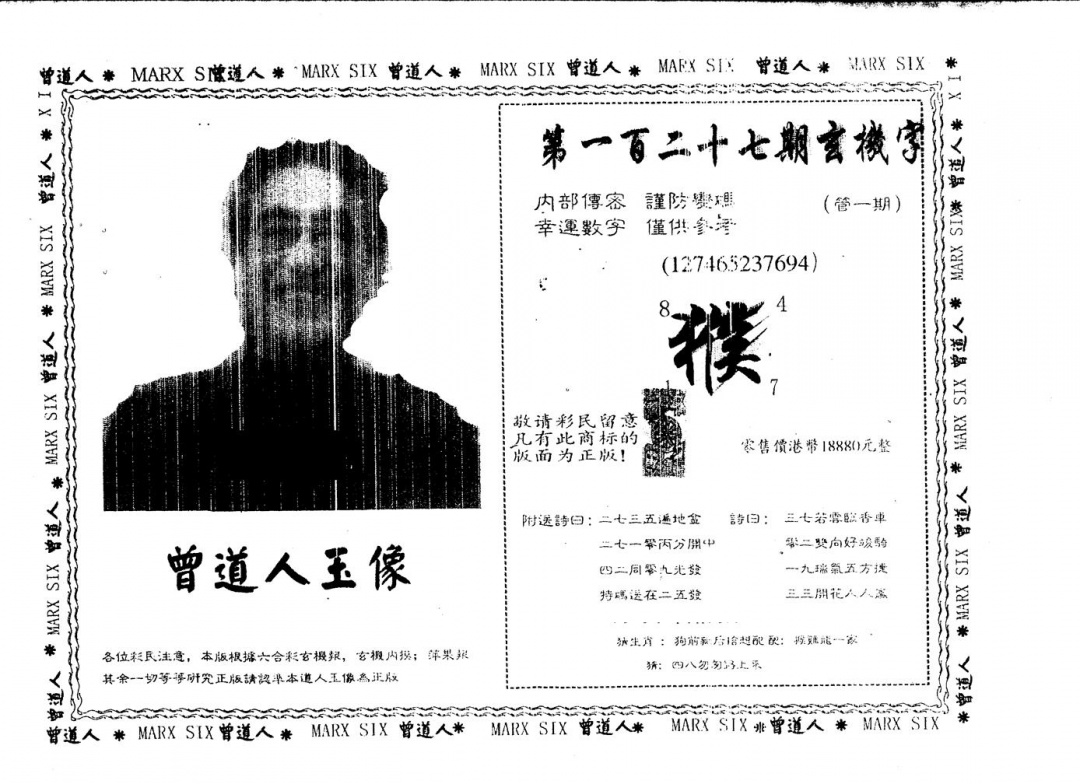 曾道人 * MARX SI 曾道人 * MARX SIX 曾道人 * MARX SIX 曾道人 * MARX SIX 曾道人 * MARX SIX *
第一百二十七期玄機字
内部傳密 謹防變碼 (管一期)
幸運數字 僅供參考
(127465237694)
8 4
1 7
敬请彩民留意
凡有此商标的
版面为正版!
零售價港幣18880元整
附送詩曰: 二七三五遍地金 詩曰: 三七若雲臨香車
二七一零丙分開中 零二雙向好破騎
四二同零九光發 一九瑞氣五方捷
特碼送在二五發 三三開花人人
猜生肖: 狗前
猜: 四八
曾道人玉像
各位彩民注意,本版根據六合彩玄機報,玄機内操;萍果報
其余一切等等研究正版請認準本道人玉像為正版
曾道人 * MARX SIX 曾道人 * MARX SIX 曾道人 * MARX SIX 曾道人 * MARX SIX 曾道人 * MARX SIX
MARX SIX 曾道人 * MARX SIX 曾道人 * MARX SIX 曾道人 *
曾道人 * MARX SIX 曾道人 * MARX SIX 曾道人 * MARX SIX 曾道人 *